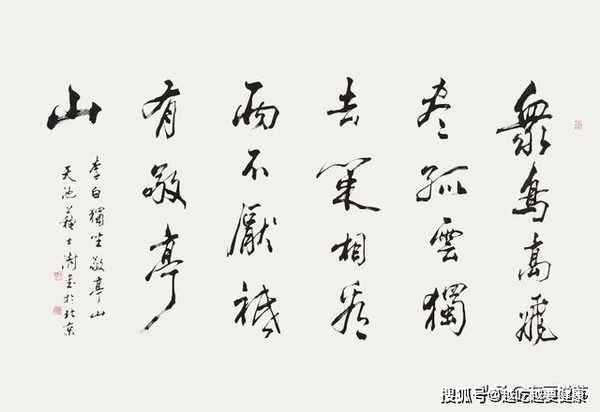 眾鳥高飛
盡孤雲獨
去閒相看
兩不厭祗
有敬亭
山
李白獨坐敬亭山
天池藝士於北京
搜狐号@越吃越要健康